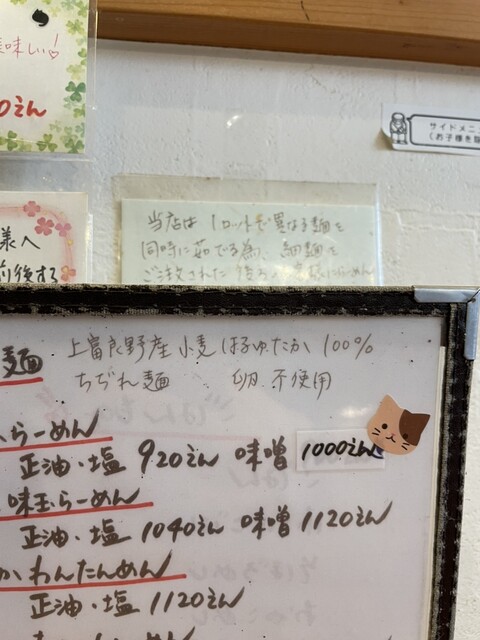 味しい!
0えん
サイドメニュ
(お子様を
様へ
前後する
当店は 1ロットで異なる麺を
同時に茹でる為、細麺を
ご注文された
麺 上富良野産 小麦 はるゆたか 100%
ちぢれ麺 卵 不使用
らーめん
正油・塩 920えん 味噌 1000えん
味玉らーめん
正油・塩 1040えん 味噌 1120えん
わんたんめん
正油・塩 1120えん